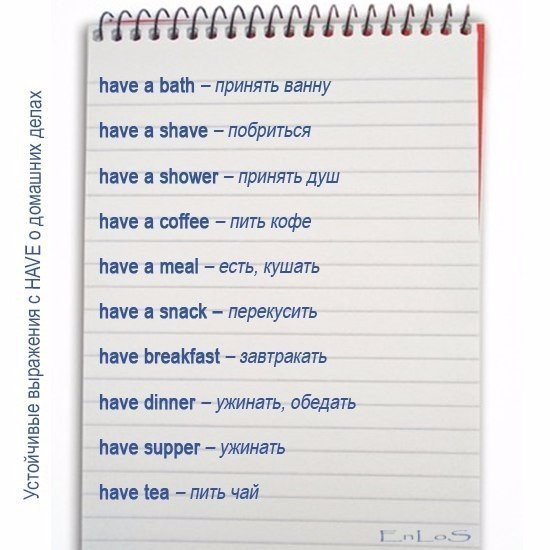 Устойчивые выражения с HAVE о домашних делах
have a bath – принять ванну
have a shave – побриться
have a shower – принять душ
have a coffee – пить кофе
have a meal – есть, кушать
have a snack – перекусить
have breakfast – завтракать
have dinner – ужинать, обедать
have supper – ужинать
have tea – пить чай
EnLoS